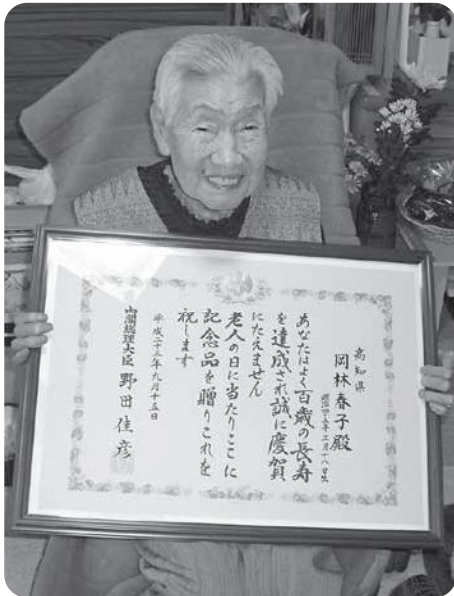 高知県
岡林春子殿
あなたはよく百歳の長寿
を達成され誠に慶賀
にたえません
老人の日に当たりここに
記念品を贈りこれを
祝します
平成二十三年九月十五日
内閣総理大臣 野田佳彦